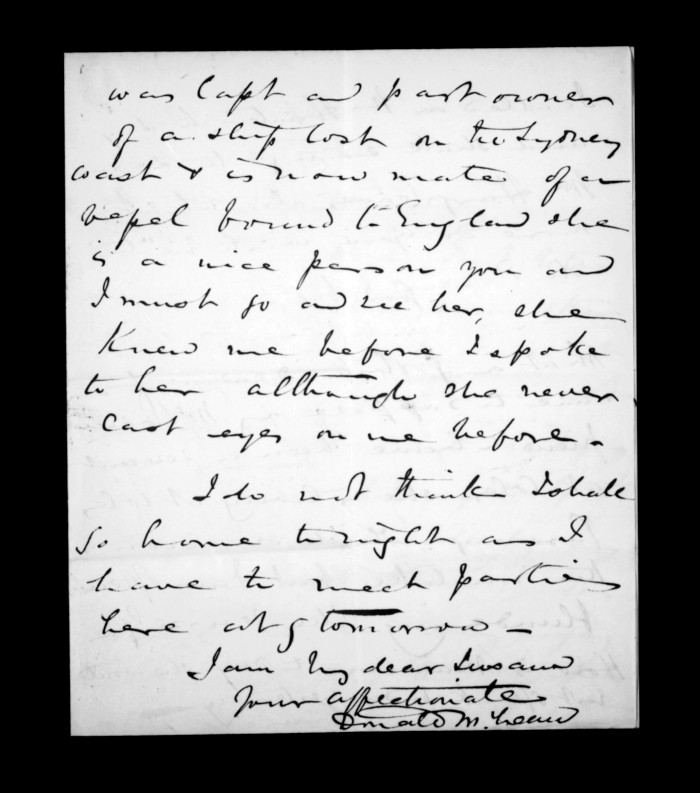 was Capt and part owner
of a ship lost on the Sydney
coast & is now mate of a
vessel bound to England she
is a nice person you and
I must go and see her, she
Knew me before I spoke
to her although she never
Cast eyes on me before.
I do not think I shall
go home tonight as I
have to meet parties
here at 9 tomorrow –
I am My dear Susan
Your affectionate
Donald McLean